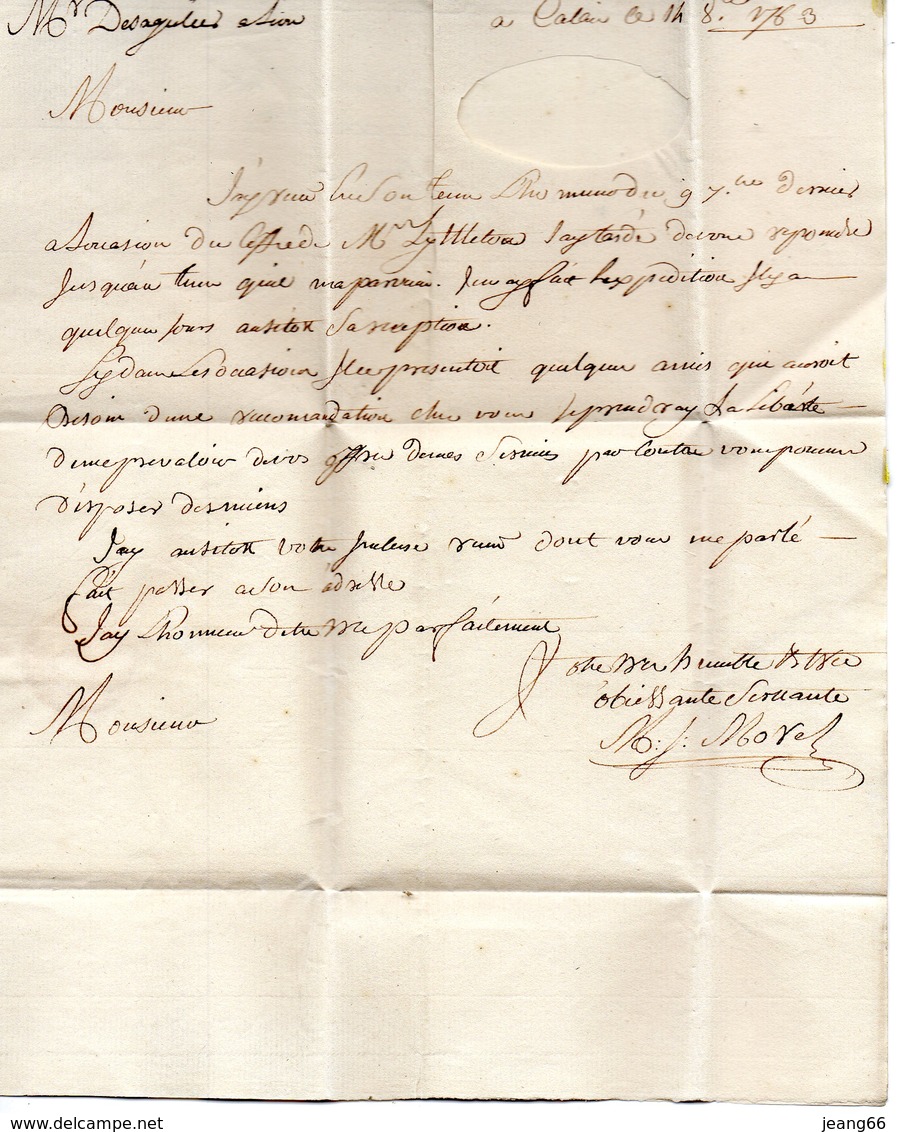 Mr Desagulier a Lion
a Calais le 14 8.bre 1763
Monsieur
J'ay reçu en son tems l'ho du 9 7.bre dernier
a Locasion du Coffre de Mr Lyttleton Jay tardé devous repondre
Jusquau tems quil ma parvin. Jen ay fait Lexpedition Jlya
quelques jours ausitot Sa reception.
Sy dans Les ocasion Jl ce presentoit quelques amis qui auroit
Besoin dune recomandation chez vous Je prendray La Liberté
deme prevaloir devos offre demes Services par Contre vous pouvez
disposer des miens
Jay ausitot votre reçue dont vous me parlé
fait passer a son adresse
Jay Lhonneur detre tres parfaitement
Monsieur
Votre tres humble & tres
obeissante Servante
M: J: Morel
jeang66